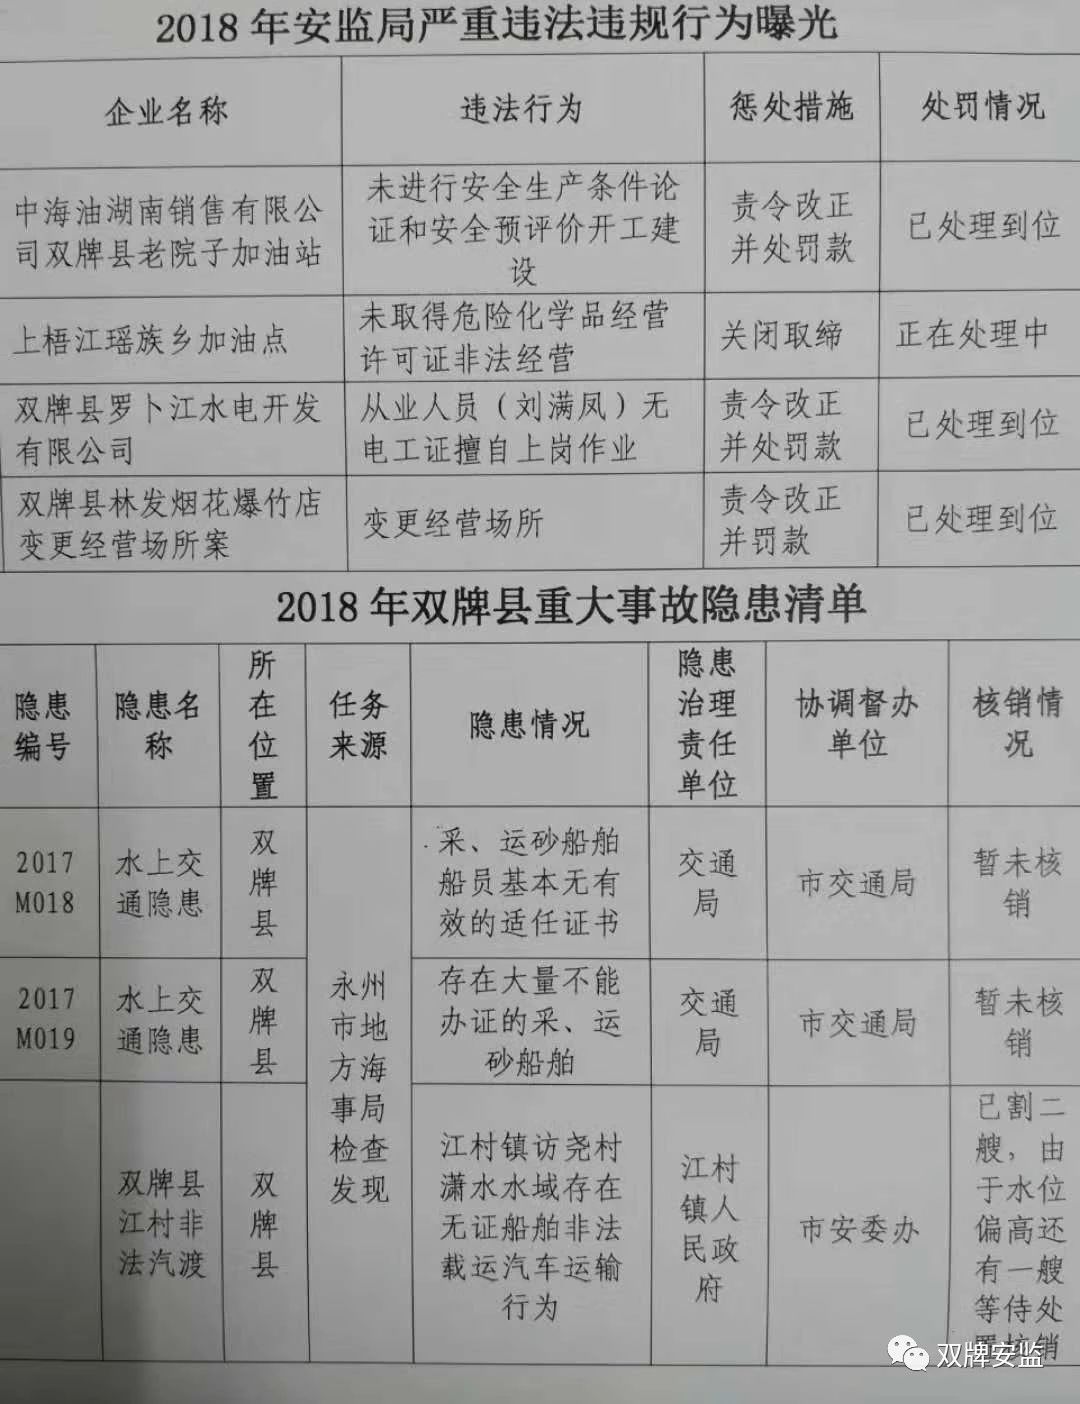 2018年安监局严重违法违规行为曝光
企业名称
违法行为
惩处措施
处罚情况
中海油湖南销售有限公
司双牌县老院子加油站
未进行安全生产条件论
证和安全预评价开工建
设
责令改正
并处罚款
已处理到位
上梧江瑶族乡加油点
未取得危险化学品经营
许可证非法经营
关闭取缔
正在处理中
双牌县罗卜江水电开发
有限公司
从业人员（刘满凤）无
电工证擅自上岗作业
责令改正
并处罚款
已处理到位
双牌县林发烟花爆竹店
变更经营场所案
变更经营场所
责令改正
并罚款
已处理到位
2018年双牌县重大事故隐患清单
隐患
编号
隐患名
称
所
在
位
置
任务
来源
隐患情况
隐患
治理
责任
单位
协调督办
单位
核销情
况
2017
M018
水上交
通隐患
双
牌
县
永州
市地
方海
事局
检查
发现
采、运砂船舶
船员基本无有
效的适任证书
交通
局
市交通局
暂未核
销
2017
M019
水上交
通隐患
双
牌
县
存在大量不能
办证的采、运
砂船舶
交通
局
市交通局
暂未核
销
双牌县
江村非
法汽渡
双
牌
县
江村镇访尧村
潇水水域存在
无证船舶非法
载运汽车运输
行为
江村
镇人
民政
府
市安委办
已割二
艘，由
于水位
偏高还
有一艘
等侍处
置核销
双牌安监